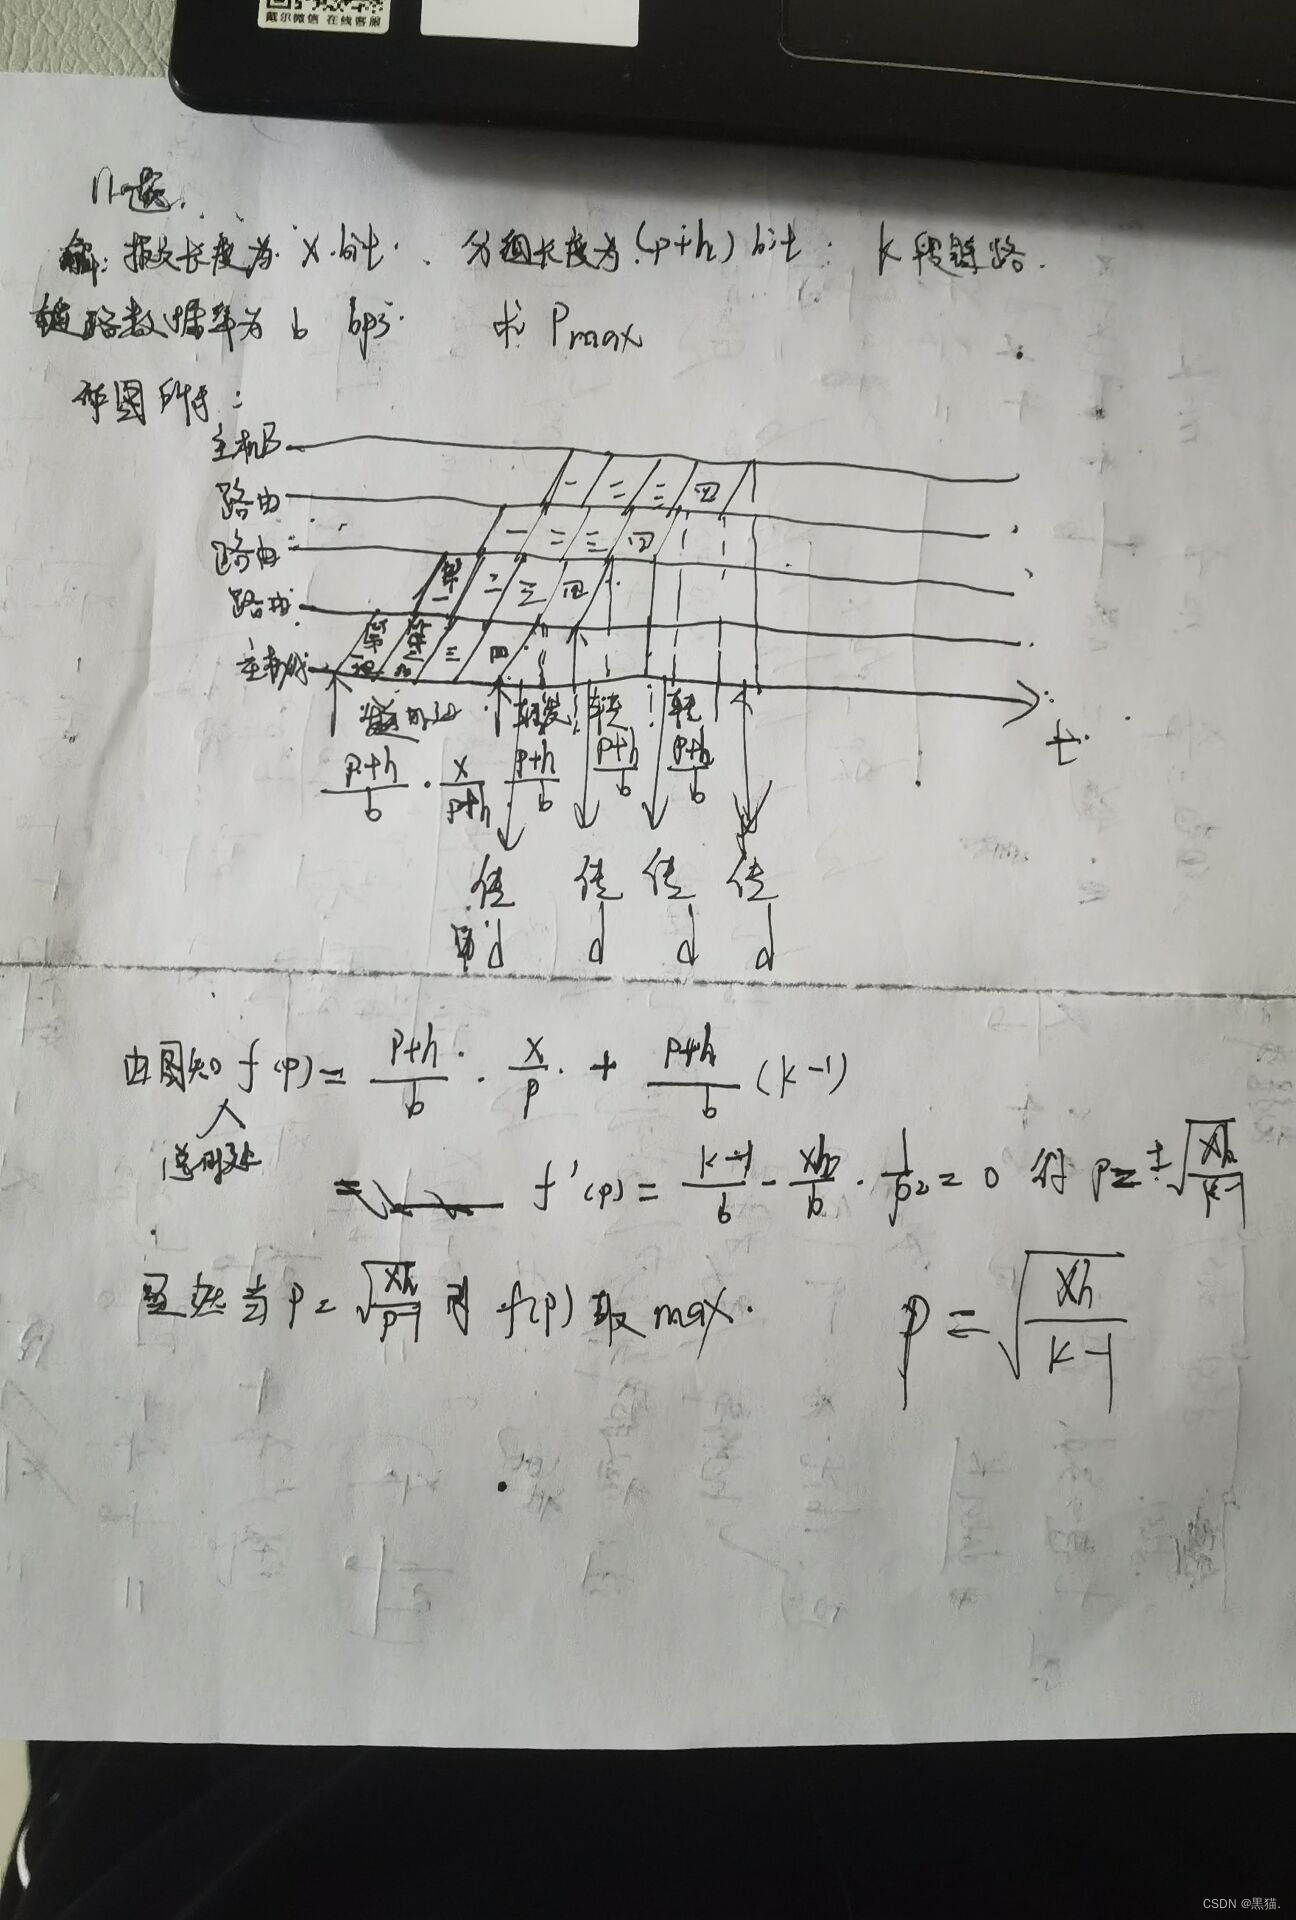 戴尔微信 在线客服
11题.
解: 报文长度为 x bit. 分组长度为 (p+h) bit. k 段链路.
链路数据率为 b bps. 求 Pmax
作图所示:
主机B
一 二 三 四
路由
一 二 三 四
路由
第一 二 三 四
路由
三 四
主机
t
转发 转发 转发
p+h/b · x/p+h p+h/b p+h/b p+h/b
传 传 传 传
d d d d
由图知 f(p) = p+h/b · x/p + p+h/b (k-1)
总时延
= f'(p) = k-1/b - xh/b · 1/p2 = 0 得 p = ±√xh/k-1
显然当 p = √xh/p-1 时 f(p) 取 max.
p = √xh/k-1
CSDN @黑猫.